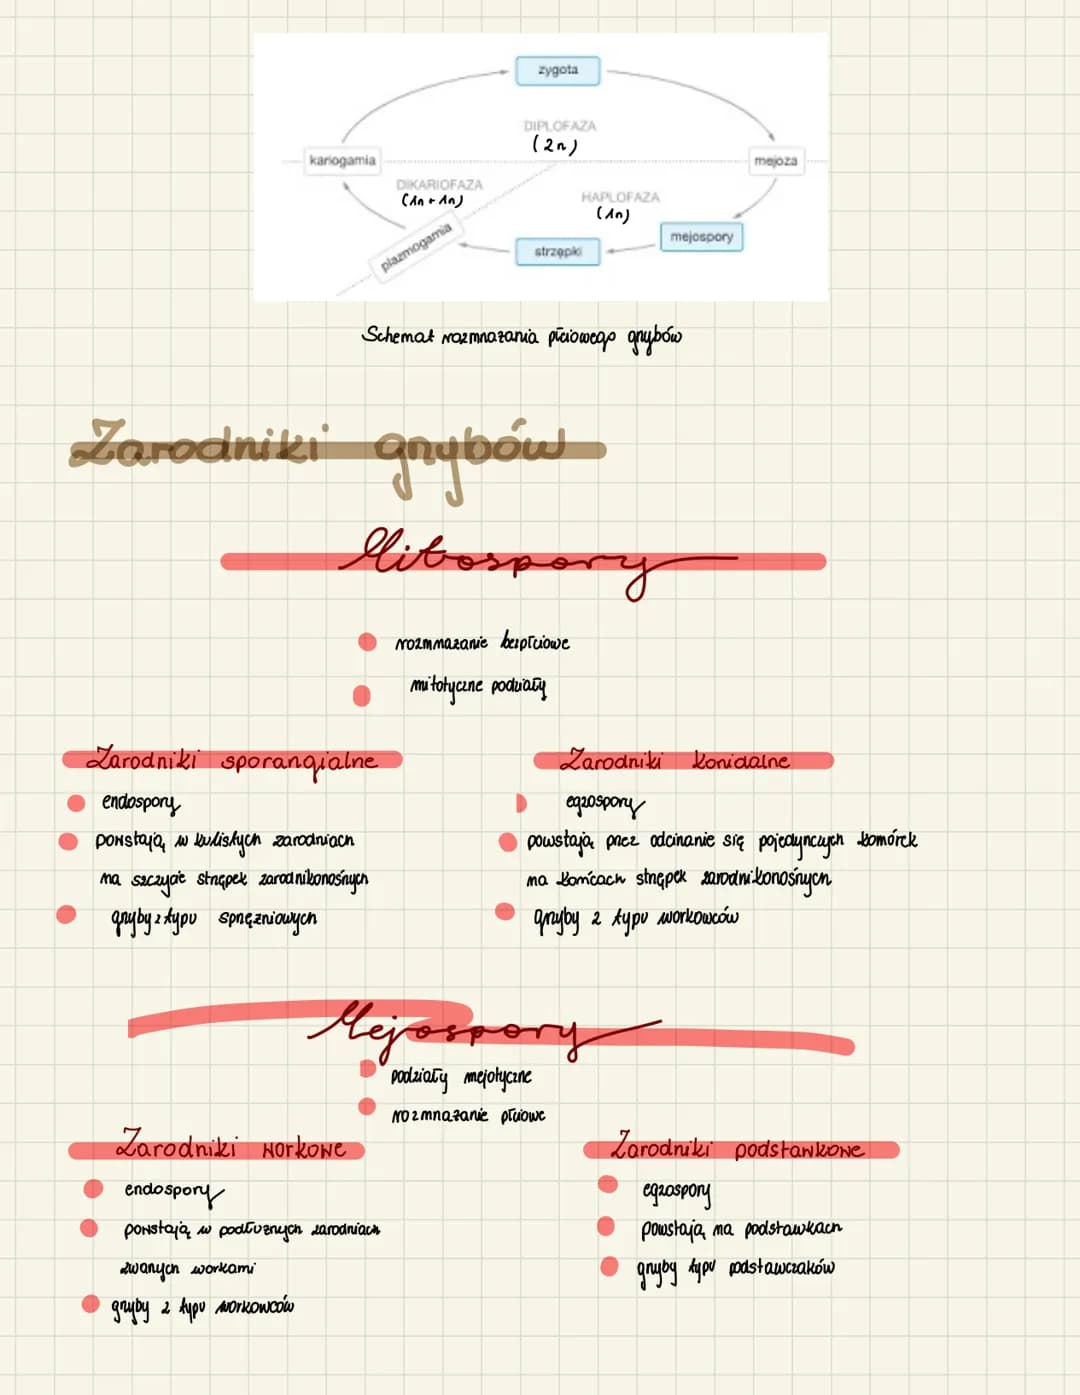 zygota
DIPLOFAZA
(2n)
kariogamia
mejoza
DIKARIOFAZA
(1n + 1n)
HAPLOFAZA
(1n)
plazmogamia
strzępki
mejospory
Schemat rozmnażania płciowego grzybów
Zarodniki grzybów
Mitospory
rozmnażanie bezpłciowe
mitotyczne podziały
Zarodniki sporangialne
endospory
powstają w kulistych zarodniach
na szczycie strzępek zarodnikonośnych
grzyby z typu sprzężniowych
Zarodniki konidalne
egzospory
powstają przez odcinanie się pojedynczych komórek
na końcach strzępek zarodnikonośnych
grzyby z typu workowców
Mejospory
podziały mejotyczne
rozmnażanie płciowe
Zarodniki workowe
endospory
powstają w podłużnych zarodniach
zwanych workami
grzyby z typu workowców
Zarodniki podstawkowe
egzospory
powstają na podstawkach
grzyby typu podstawczaków